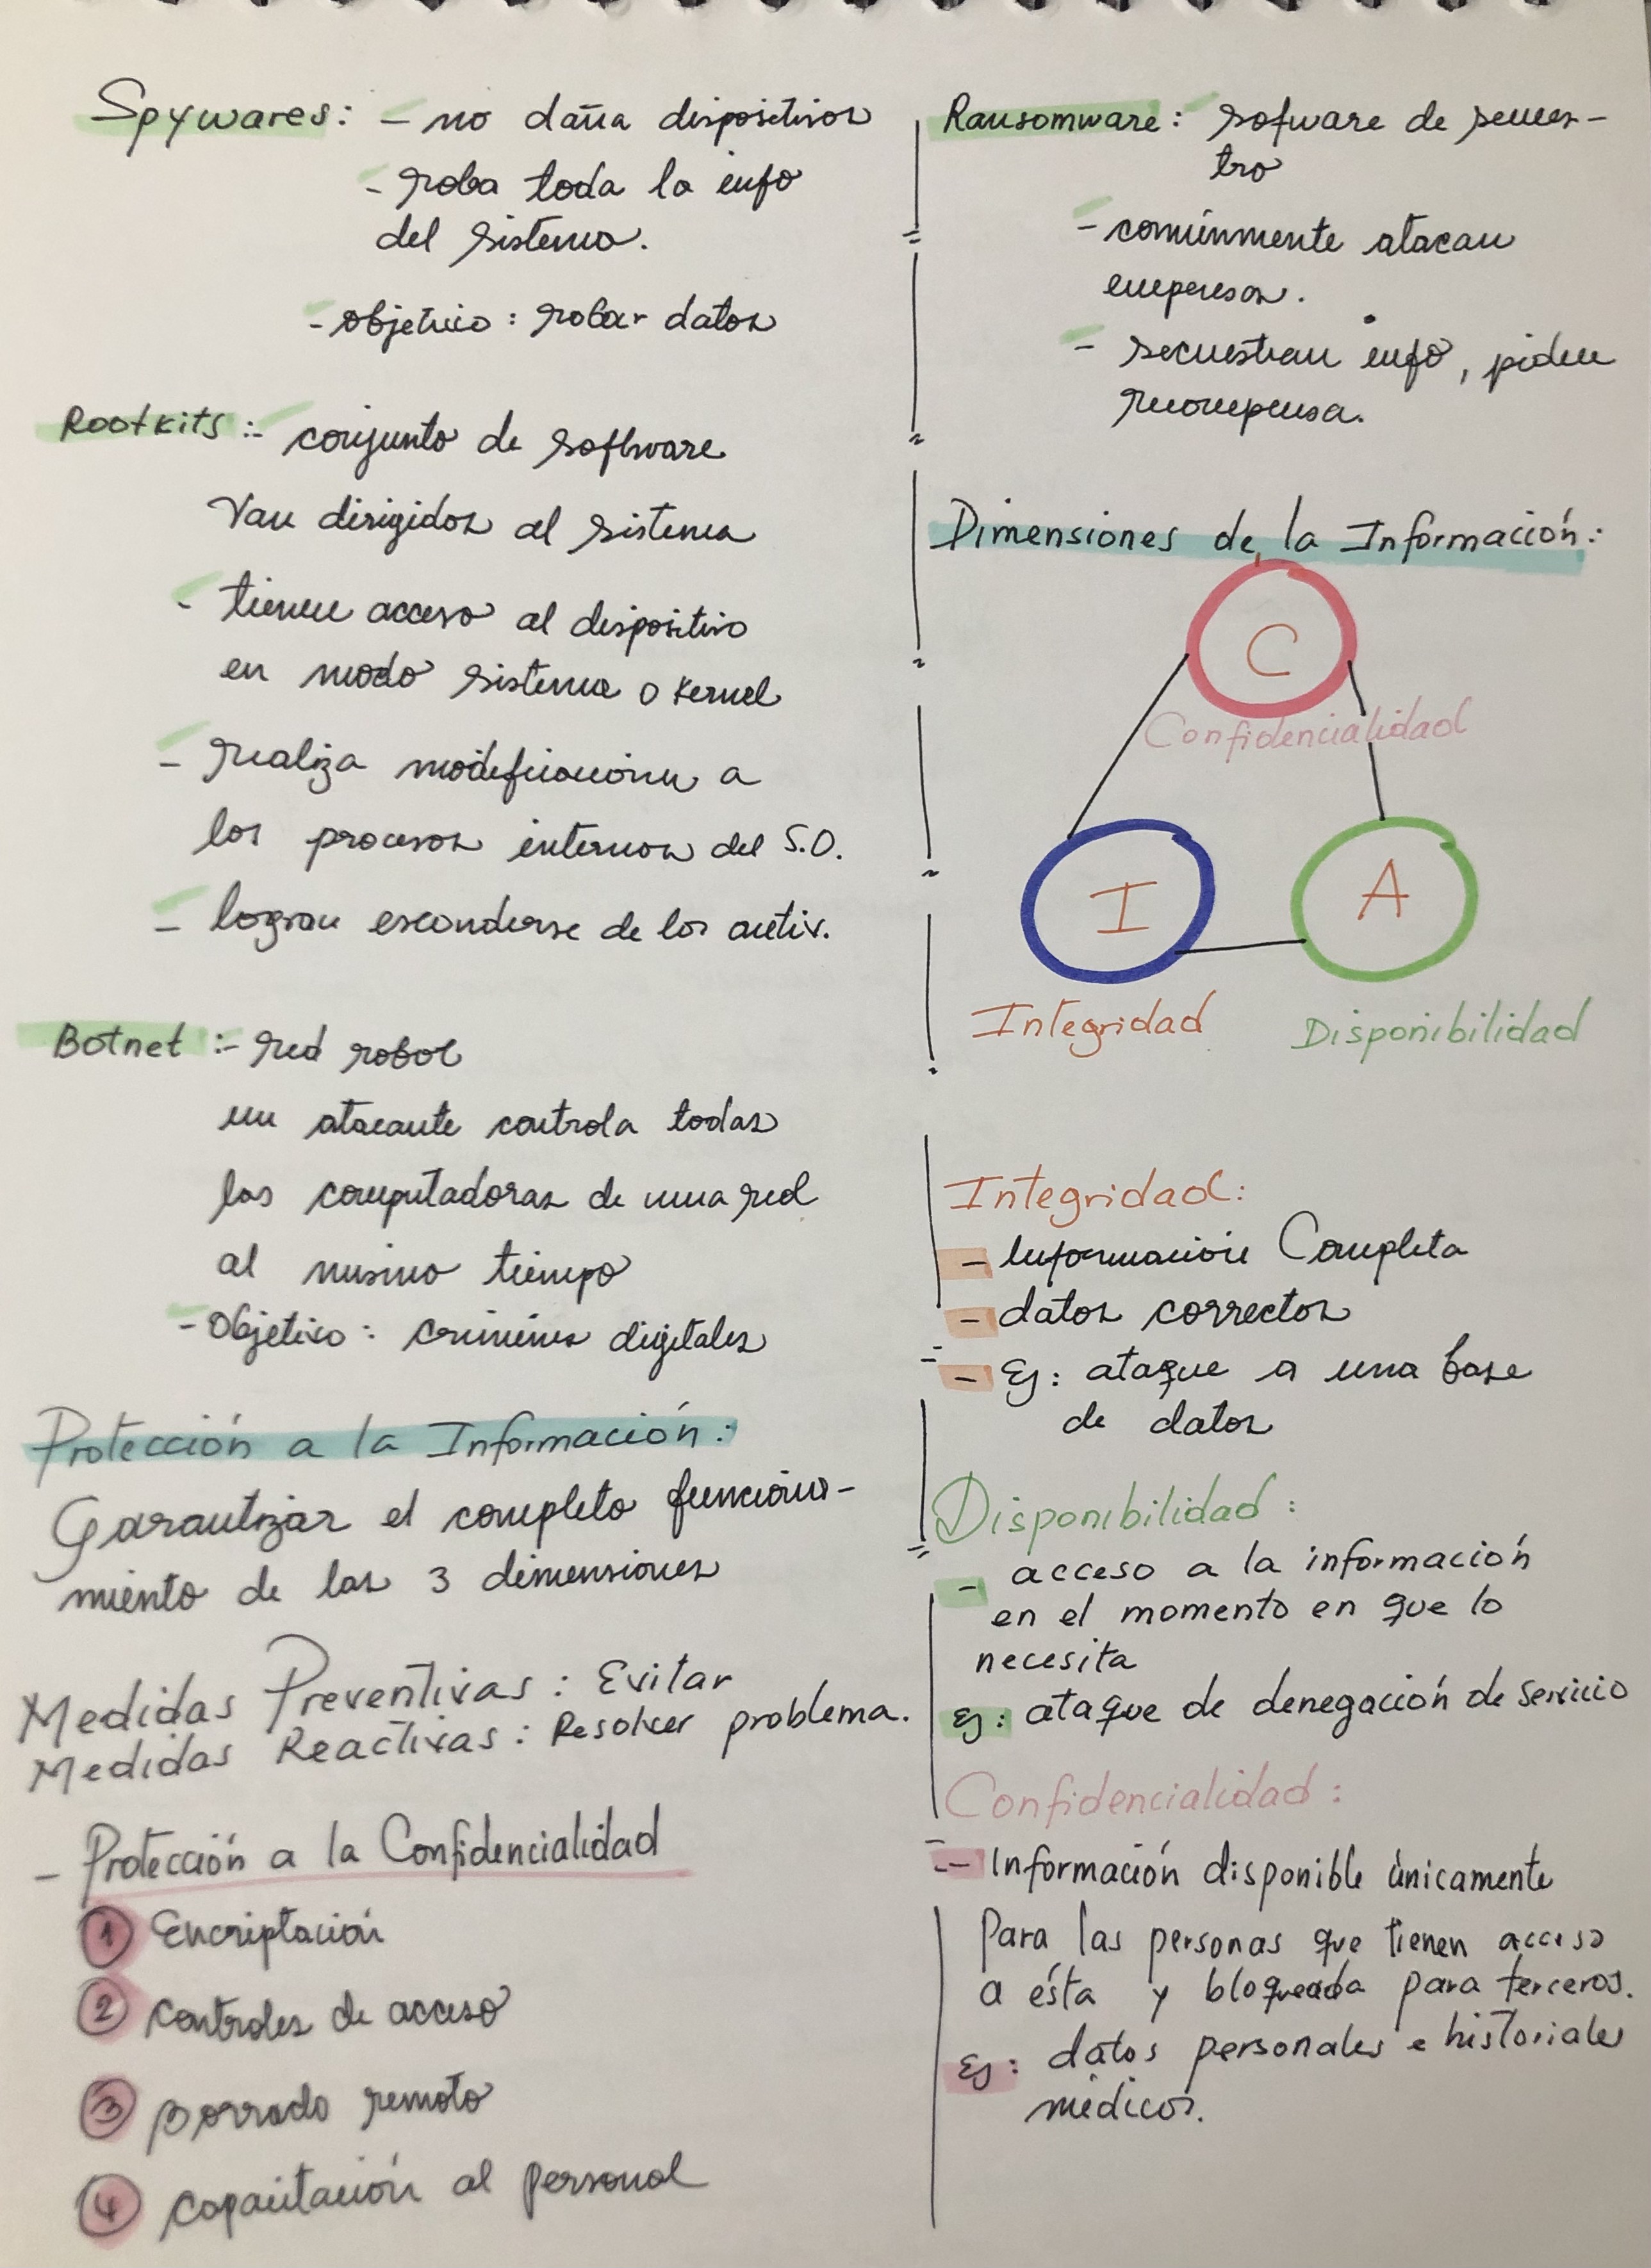 Spywares: - no daña dispositivos
- roba toda la info
del sistema.
- objetivo: robar datos
Rootkits:- conjunto de software
Van dirigidos al sistema
- tienen acceso al dispositivo
en modo sistema o kernel
- realiza modificaciones a
los procesos internos del S.O.
- logran esconderse de los antiv.
Botnet:- red robot
un atacante controla todas
las computadoras de una red
al mismo tiempo
- Objetivo: crímenes digitales
Protección a la Información:
Garantizar el completo funciona-
miento de las 3 dimensiones
Medidas Preventivas: Evitar
Medidas Reactivas: Resolver problema.
- Protección a la Confidencialidad
1 Encriptación
2 Controles de acceso
3 Borrado remoto
4 Capacitación al personal
Ransomware: sofware de secues-
tro
- comúnmente atacan
empresas.
- secuestran info, piden
recompensa.
Dimensiones de la Información:
C
Confidencialidad
I A
Integridad Disponibilidad
Integridad:
- Información Completa
- datos correctos
- Ej: ataque a una base
de datos
Disponibilidad:
- acceso a la información
en el momento en que lo
necesita
Ej: ataque de denegación de servicio
Confidencialidad:
- Información disponible únicamente
Para las personas que tienen acceso
a ésta y bloqueada para terceros.
Ej: datos personales e historiales
médicos.